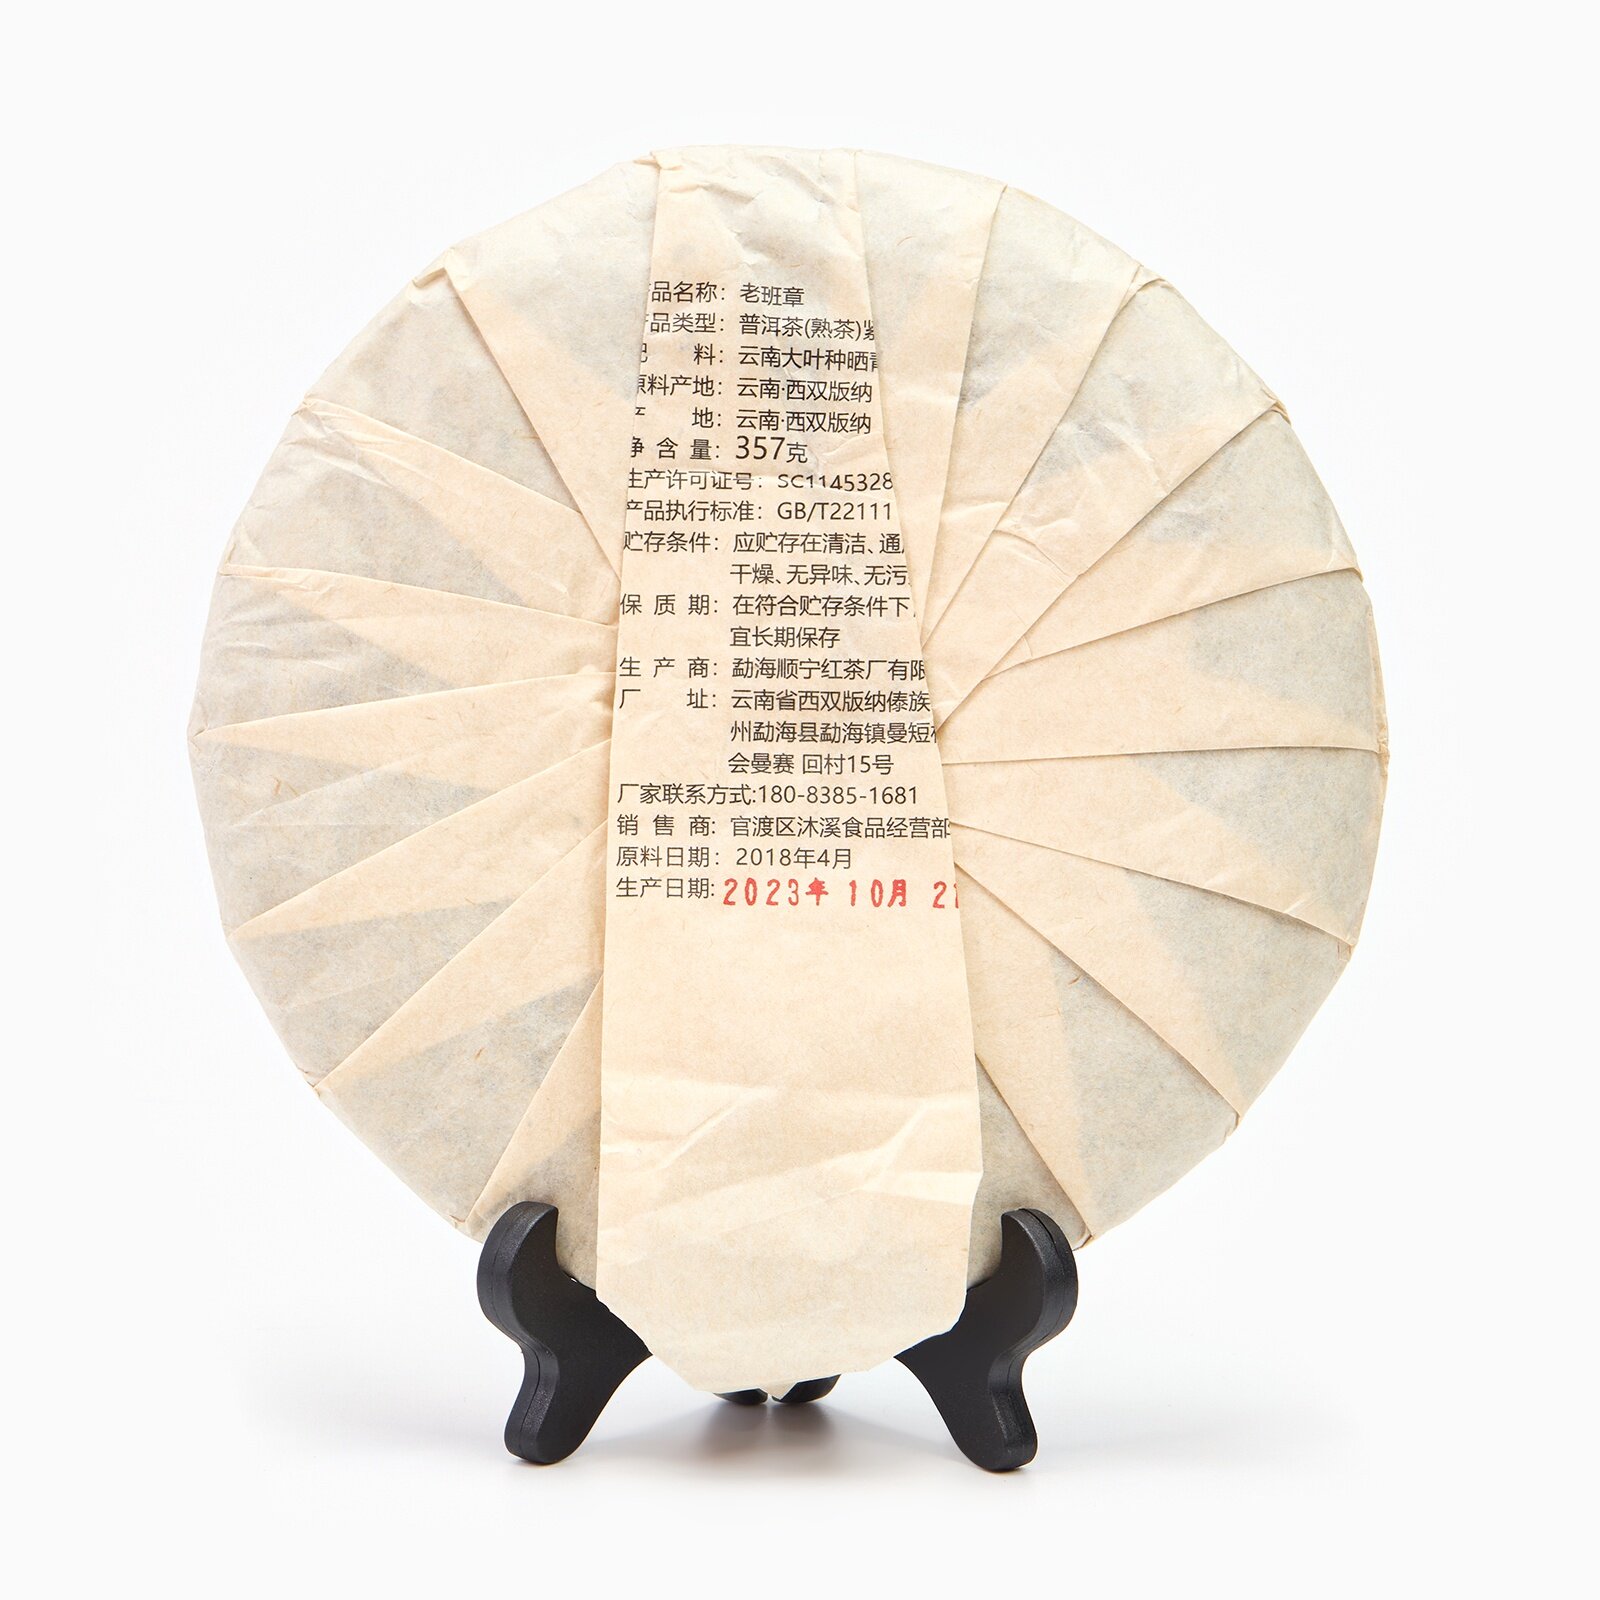 品名称：老班章
品类型：普洱茶(熟茶)
料：云南大叶种晒
料产地：云南·西双版纳
地：云南·西双版纳
净 含 量：357克
生产许可证号：SC1145328
产品执行标准：GB/T22111
贮存条件：应贮存在清洁、通
干燥、无异味、无污
保 质 期：在符合贮存条件下
宜长期保存
生 产 商：勐海顺宁红茶厂有限
厂 址：云南省西双版纳傣族
州勐海县勐海镇曼短
会曼赛 回村15号
厂家联系方式:180-8385-1681
销 售 商：官渡区沐溪食品经营部
原料日期：2018年4月
生产日期:2023年 10月 21